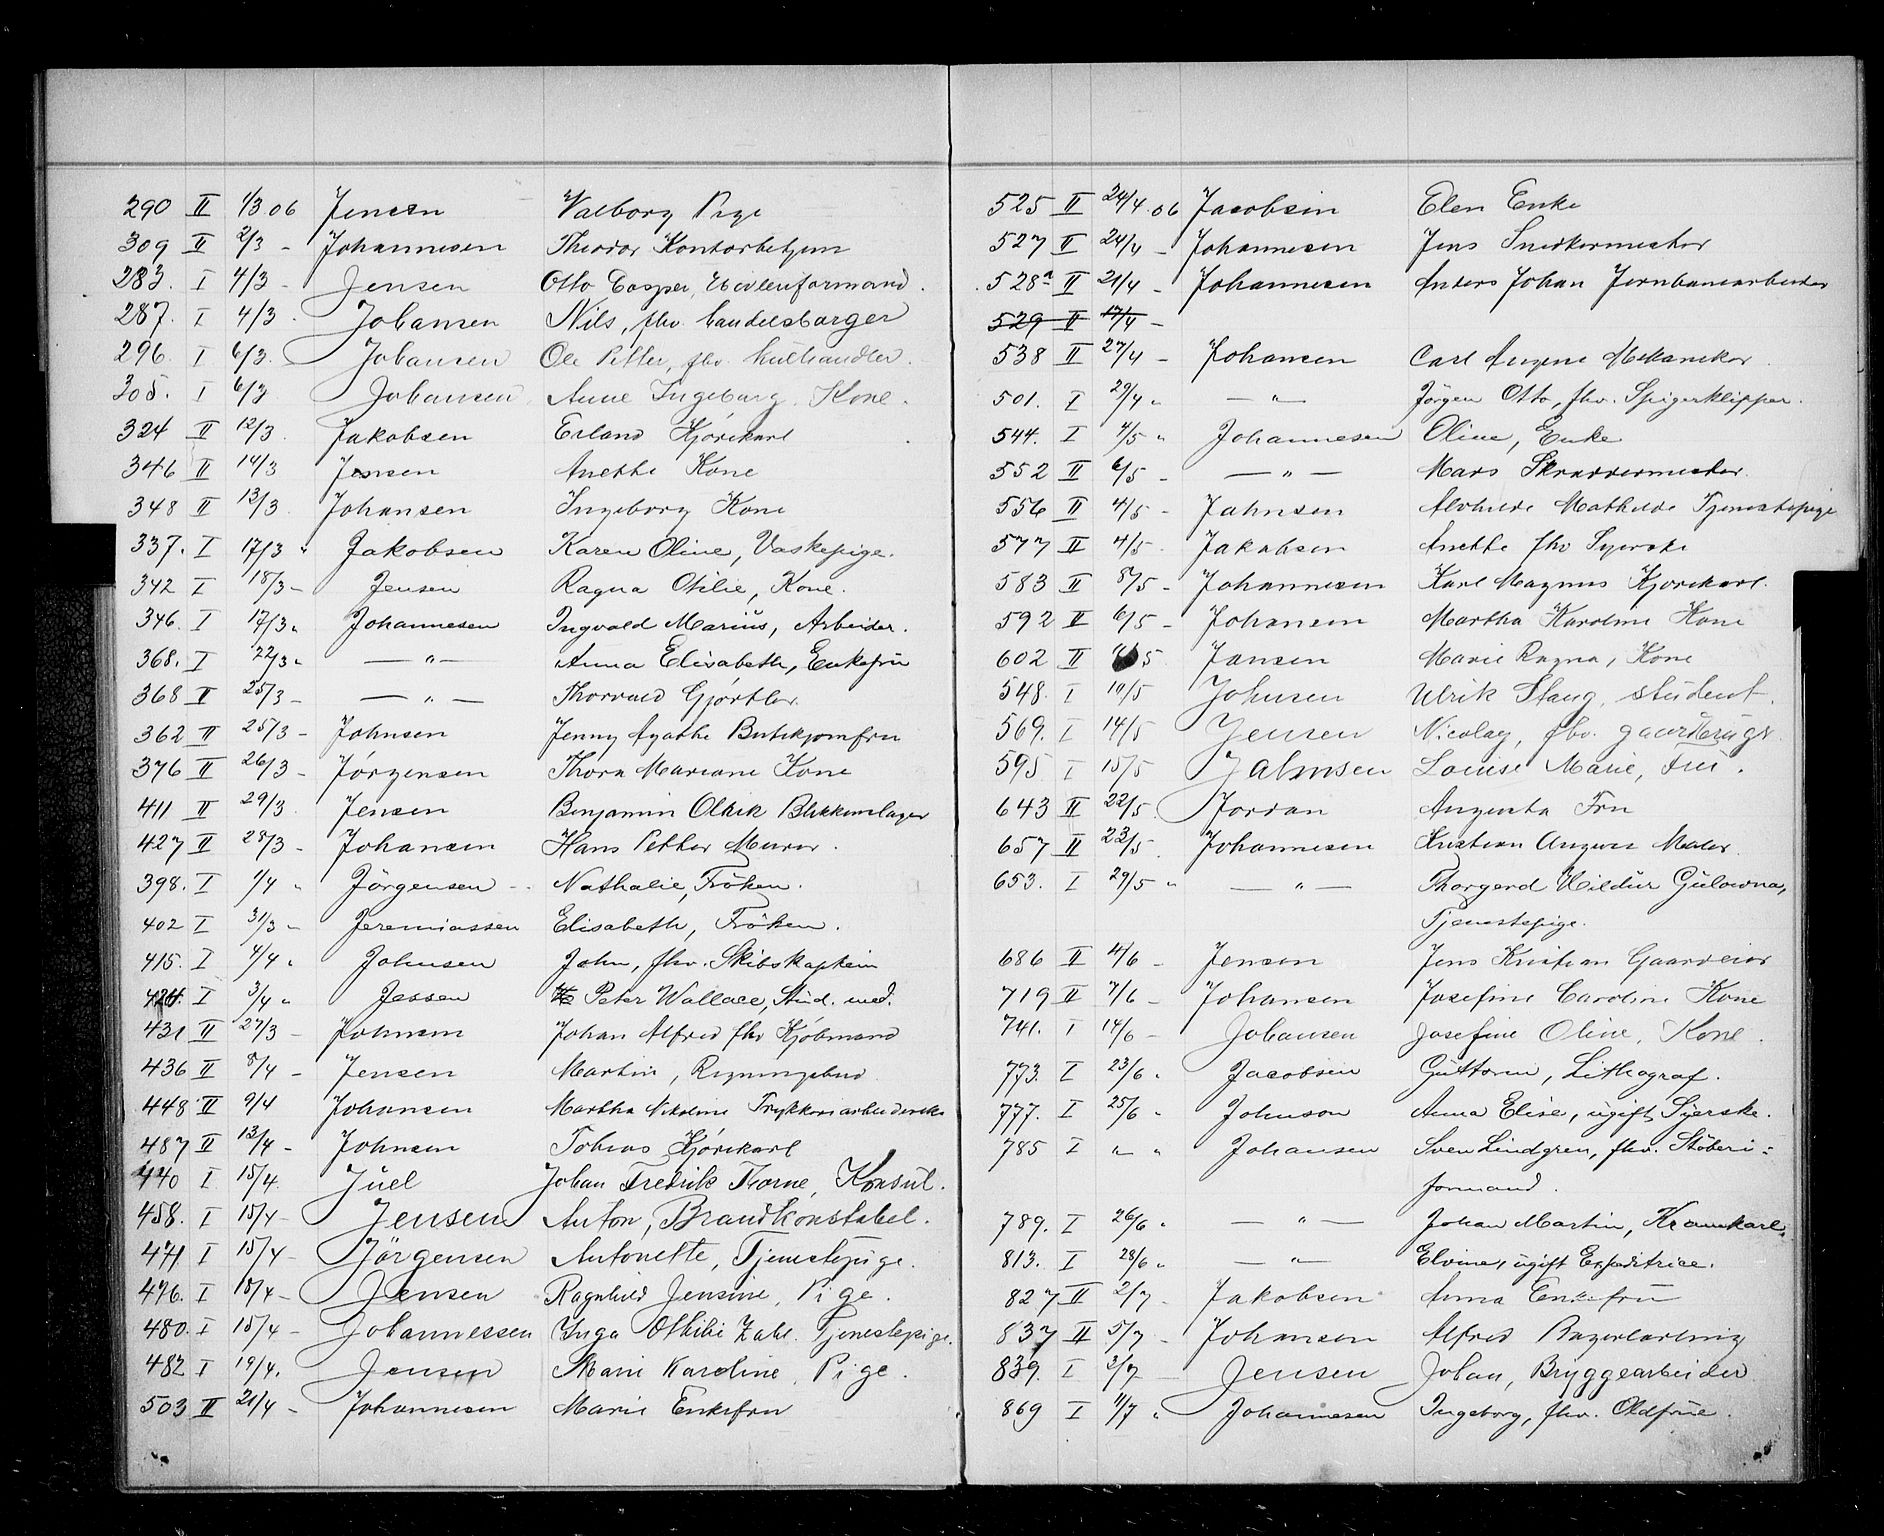 290 II 1/3 06 Jensen Valborg Pige
309 II 2/3 - Johannesen Theodor Kontorbetjen
283. I 4/3 - Jensen Otto Casper,
287. I 4/3 - Johansen Nils, fhv. handelsborger
296. I 6/3. Johansen Ole Petter, fhv. kulhandler.
305. I 6/3 Johansen Anne Ingeborg. Kone.
324 II 12/3. Jakobsen Erland Kjørekarl
346 II 14/3 Jensen Anethe Kone
348 II 13/3 Johansen Ingeborg Kone
337. I 17/3 " Jakobsen Karen Oline, Vaskepige.
342 I 18/3 - Jensen Ragna Otilie, Kone.
346. I 17/3 " Johannesen Ingvald Marius, Arbeider.
368. I 22/3 " — " — Anna Elisabeth, Enkefru
368 II 25/3 - — " — Thorvald Gjørtler.
362 II 25/3 - Johnsen Jenny Agathe Butikjomfru
376 II 26/3 - Jørgensen Thora Mariane Kone
411 II 29/3. Jensen Benjamin Olrik Blikkenslager
427 II 28/3 - Johansen Hans Petter Murer.
398. I 1/4 " Jörgensen Nathalie, Fröken.
402 I 31/3 " Jeremiassen Elisabeth, Fröken.
415. I 4/4 " Johnsen John, fhv. Skibskaptein
424. I 3/4 " Jessen Peter Wallace, Stud. med.
431 II 27/3 - Johnsen Johan Alfred fhv Kjøbmand
436 II 8/4 - Jensen Martin, Rygningsbud
448 II 9/4 Johansen Martha Nikoline Trykkeriarbeiderske
487 II 13/4 - Johnsen Tobias Kjørekarl
440 I 15/4 Juel Johan Fredrik Thorne, Konsul.
458. I 15/4 - Jensen Anton, Brandkonstabel.
471 I 15/4 - Jörgensen Antonette, Tjenestepige.
476. I 18/4 - Jensen Ragnhild Jensine, Pige.
480. I 15/4 - Johannessen Inga Othilie Zahl. Tjenestepige.
482 I 19/4. Jensen Marie Karoline, Pige.
503 II 21/4 - Johannesen Marie Enkefru
525 II 24/4 06 Jacobsen Elen Enke
527 II 24/4 - Johannesen Jens Snedkermester
528a II 21/4 - Johannesen Anders Johan Jernbanearbeider
529 II 17/4 -
538 II 27/4 - Johansen Carl Eugene Mekaniker
501. I 29/4 " — " — Jörgen Otto, fhv. Spigerklipper.
544. I 4/5 " Johannesen Oline, Enke
552 II 6/5 - — " — Mads Skreddermester.
556 II 4/5 - Jahnsen Alvhilde Mathilde Tjenestepige
577 II 4/5 Jakobsen Anethe fhv Syerske
583 II 8/5 - Johannesen Karl Magnus Kjørekarl.
592 II 6/5 - Johansen Martha Karoline Kone
602 II 5 Jansen Marie Ragna, Kone
548. I 10/5 Johnsen Ulrik Stang, student.
569. I 14/5 Jensen Nicolay, fhv. gaardbruger.
595 I 15/5 Jahnsen Louise Marie, Fru.
643 II 22/5 Jordan Augusta Fru
657 II 23/5 Johannesen Kristian August Maler.
653. I 29/5 " — " — Thorgerd Hildur Gulowna,
Tjenestepige.
686 II 4/6 - Jensen Jens Kristian Gaardeier
719 II 7/6 - Johansen Josefine Caroline Kone
741. I 14/6 - Johansen Josefine Oline, Kone.
773. I 23/6 " Jacobsen Guttorm, Lithograf.
777. I 25/6 " Johnson Anna Elise, ugift, Syerske.
785 I " " Johansen Sven Lindgren, fhv. Støberi=
formand.
789. I 26/6 " — " — Johan Martin, Kramkarl.
813. I 28/6 " — " — Elvine, ugift Expeditrice.
827 II 2/7 - Jakobsen Anna Enkefru
837 II 5/7 - Johansen Alfred Bagerlærling
839. I 2/7 Jensen Johan, Bryggearbeider
869 I 11/7 " Johannesen Ingeborg, fhv. Oldfrue.